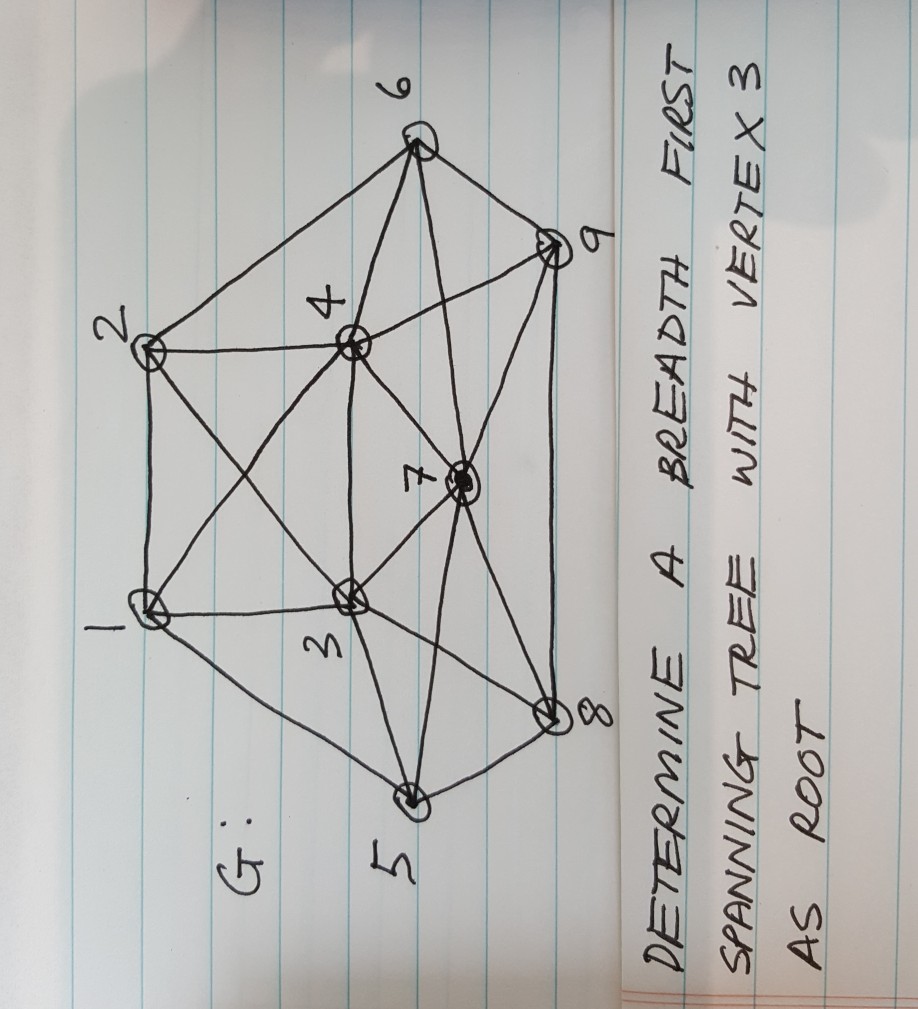 1
2
G:
3
4
5
7
6
8
9
DETERMINE A BREADTH FIRST
SPANNING TREE WITH VERTEX 3
AS ROOT